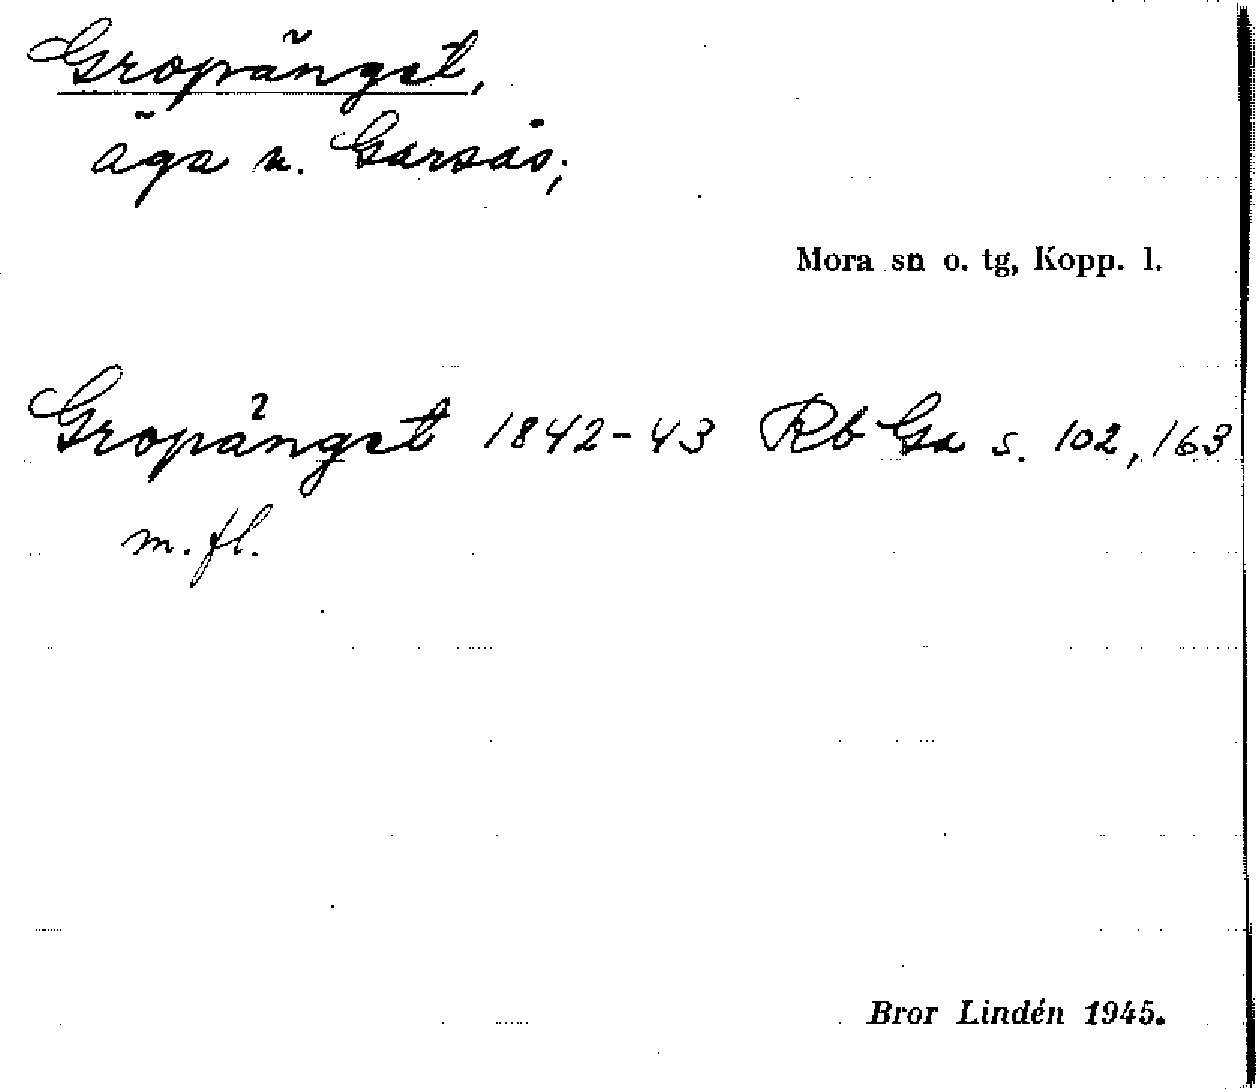 Gropänget,
äga n. Garsås;
Mora sn o. tg, Kopp. l.
Gropänget 1842-43 Rb Ga s. 102, 163
m. fl.
Bror Lindén 1945.